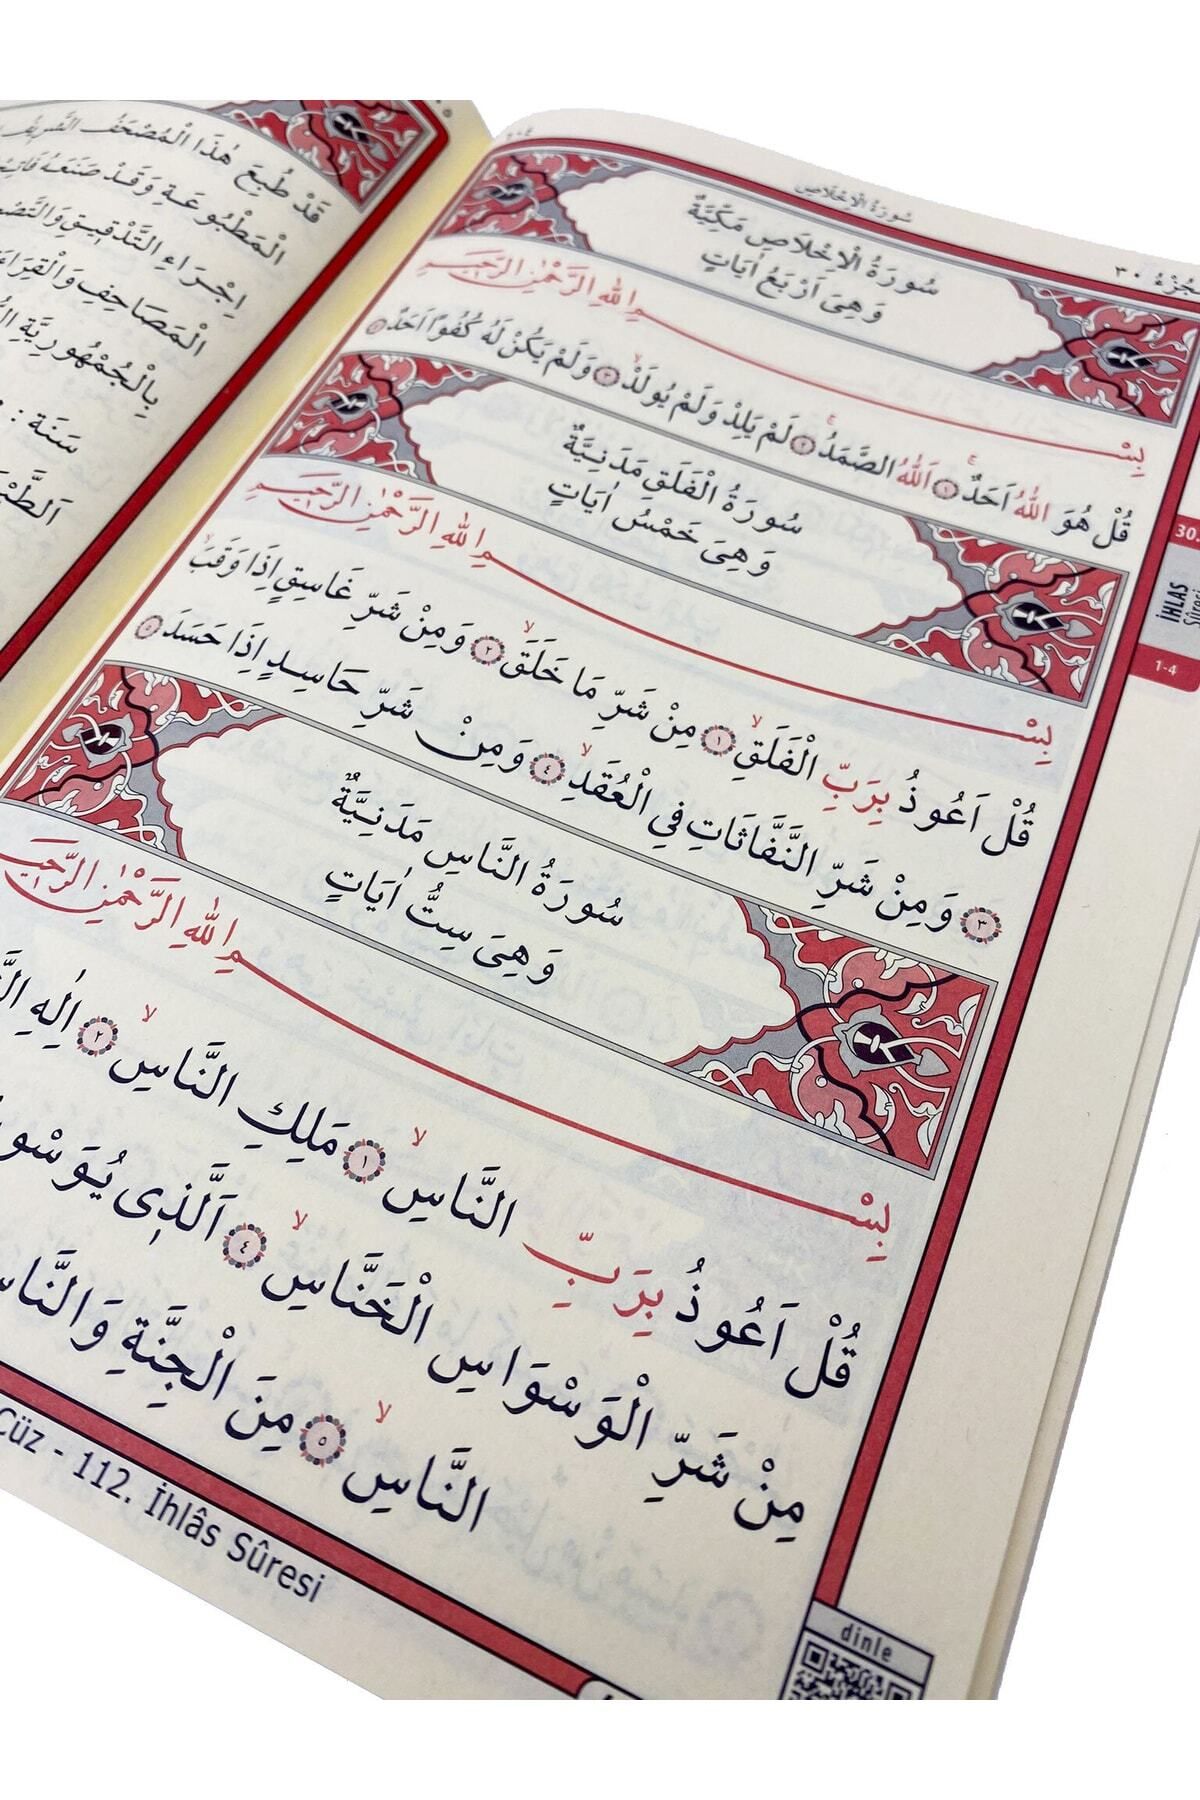 سُورَةُ الْاِخْلَاصِ
٦٠٤
٣٠
سُورَةُ الْاِخْلَاصِ مَكِّيَّةٌ
وَهِىَ اَرْبَعُ اٰيَاتٍ
بِسْمِ اللهِ الرَّحْمٰنِ الرَّحِيمِ
قُلْ هُوَ اللهُ اَحَدٌ ١ اَللهُ الصَّمَدُ ٢ لَمْ يَلِدْ وَلَمْ يُولَدْ ٣ وَلَمْ يَكُنْ لَهُ كُفُوًا اَحَدٌ
سُورَةُ الْفَلَقِ مَدَنِيَّةٌ
وَهِىَ خَمْسُ اٰيَاتٍ
بِسْمِ اللهِ الرَّحْمٰنِ الرَّحِيمِ
قُلْ اَعُوذُ بِرَبِّ الْفَلَقِ ١ مِنْ شَرِّ مَا خَلَقَ ٢ وَمِنْ شَرِّ غَاسِقٍ اِذَا وَقَبَ
٣ وَمِنْ شَرِّ النَّفَّاثَاتِ فِي الْعُقَدِ ٤ وَمِنْ شَرِّ حَاسِدٍ اِذَا حَسَدَ ٥
سُورَةُ النَّاسِ مَدَنِيَّةٌ
وَهِىَ سِتُّ اٰيَاتٍ
بِسْمِ اللهِ الرَّحْمٰنِ الرَّحِيمِ
قُلْ اَعُوذُ بِرَبِّ النَّاسِ ١ مَلِكِ النَّاسِ ٢ اِلٰهِ
مِنْ شَرِّ الْوَسْوَاسِ الْخَنَّاسِ ٤ اَلَّذِى
النَّاسِ ٥ مِنَ الْجِنَّةِ وَالنَّاسِ
Cüz - 112. İhlâs Sûresi
dinle
30.
İHLAS
Sûresi
1-4
قَدْ طُبِعَ هٰذَا الْمُصْحَفُ الشَّرِيفُ
الْمَطْبُوعَةِ وَقَدْ صَنَعَهُ
اِجْرَاءِ التَّدْقِيقِ
الْمَصَاحِفِ
بِالْجُمْهُورِيَّةِ
سَنَة :